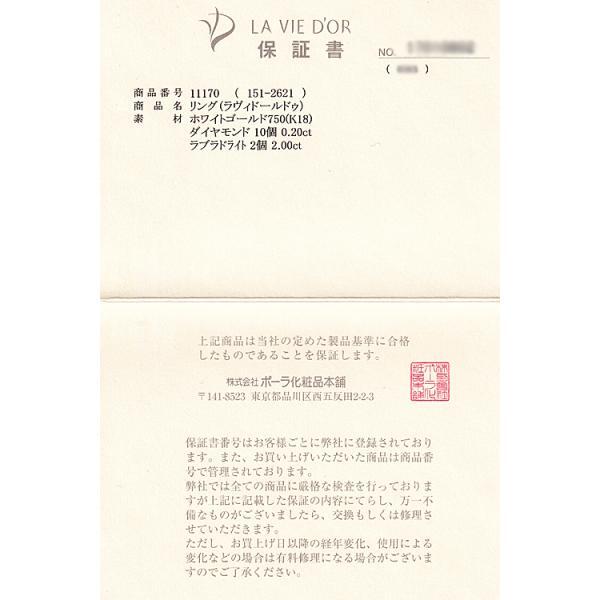 LA VIE D'OR
保証書
NO.
商品番号 11170 ( 151-2621 )
商品名 リング(ラヴィドールドゥ)
素材 ホワイトゴールド750(K18)
ダイヤモンド 10個 0.20ct
ラブラドライト 2個 2.00ct
上記商品は当社の定めた製品基準に合格
したものであることを保証します。
株式会社 ポーラ化粧品本舗
〒141-8523 東京都品川区西五反田2-2-3
保証書番号はお客様ごとに弊社に登録されており
ます。また、お買い上げいただいた商品は商品番
号で管理されております。
弊社では全ての商品に厳格な検査を行っておりま
すが上記に記載した保証の内容にてらし、万一不
備なものがございましたら、交換もしくは修理さ
せていただきます。
ただし、お買上げ日以降の経年変化、使用による
変化などの場合は有料修理になる場合がございま
すのでご了承ください。